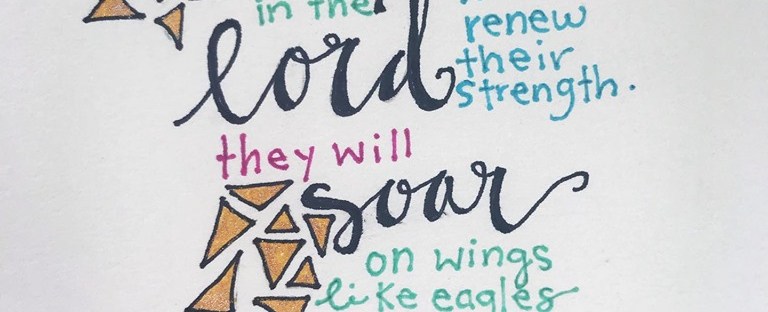 in the
lord
renew
their
strength.
they will
soar
on wings
like eagles